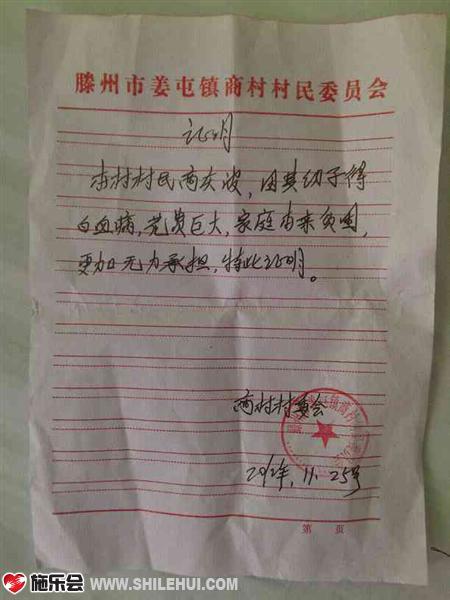 滕州市姜屯镇商村村民委员会
证明
本村村民商庆波，因其幼子得
白血病，花费巨大，家庭由来贫困，
更加无力承担，特此证明。
商村村委会
2012年.11.25号
第 页
施乐会
WWW.SHILEHUI.COM